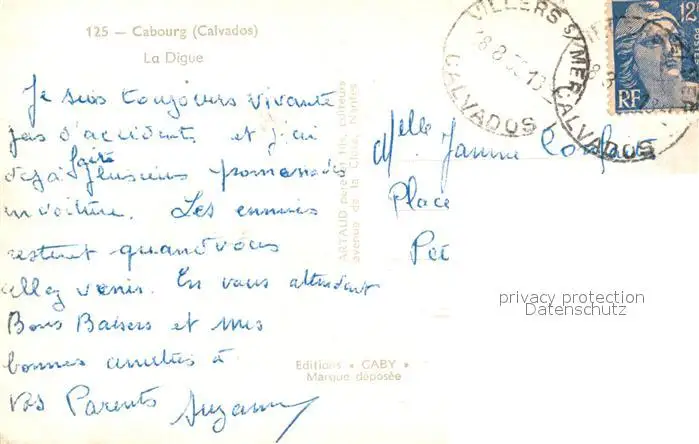 125 — Cabourg (Calvados)
La Digue
Je suis toujours vivante
pas d'accidents et j'ai
déjà faire plusieurs promenades
en voiture. Les ennuis
restent quand vous
allez venir. En vous attendant
Bons Baisers et mes
bonnes amitiés à
vos Parents Suzanne
ARTAUD père et fils, éditeurs
avenue de la Nantes
Editions « GABY »
Marque déposée
VILLERS S/MER
CALVADOS
CALVADOS
RF
Melle Janine
Place
privacy protection
Datenschutz